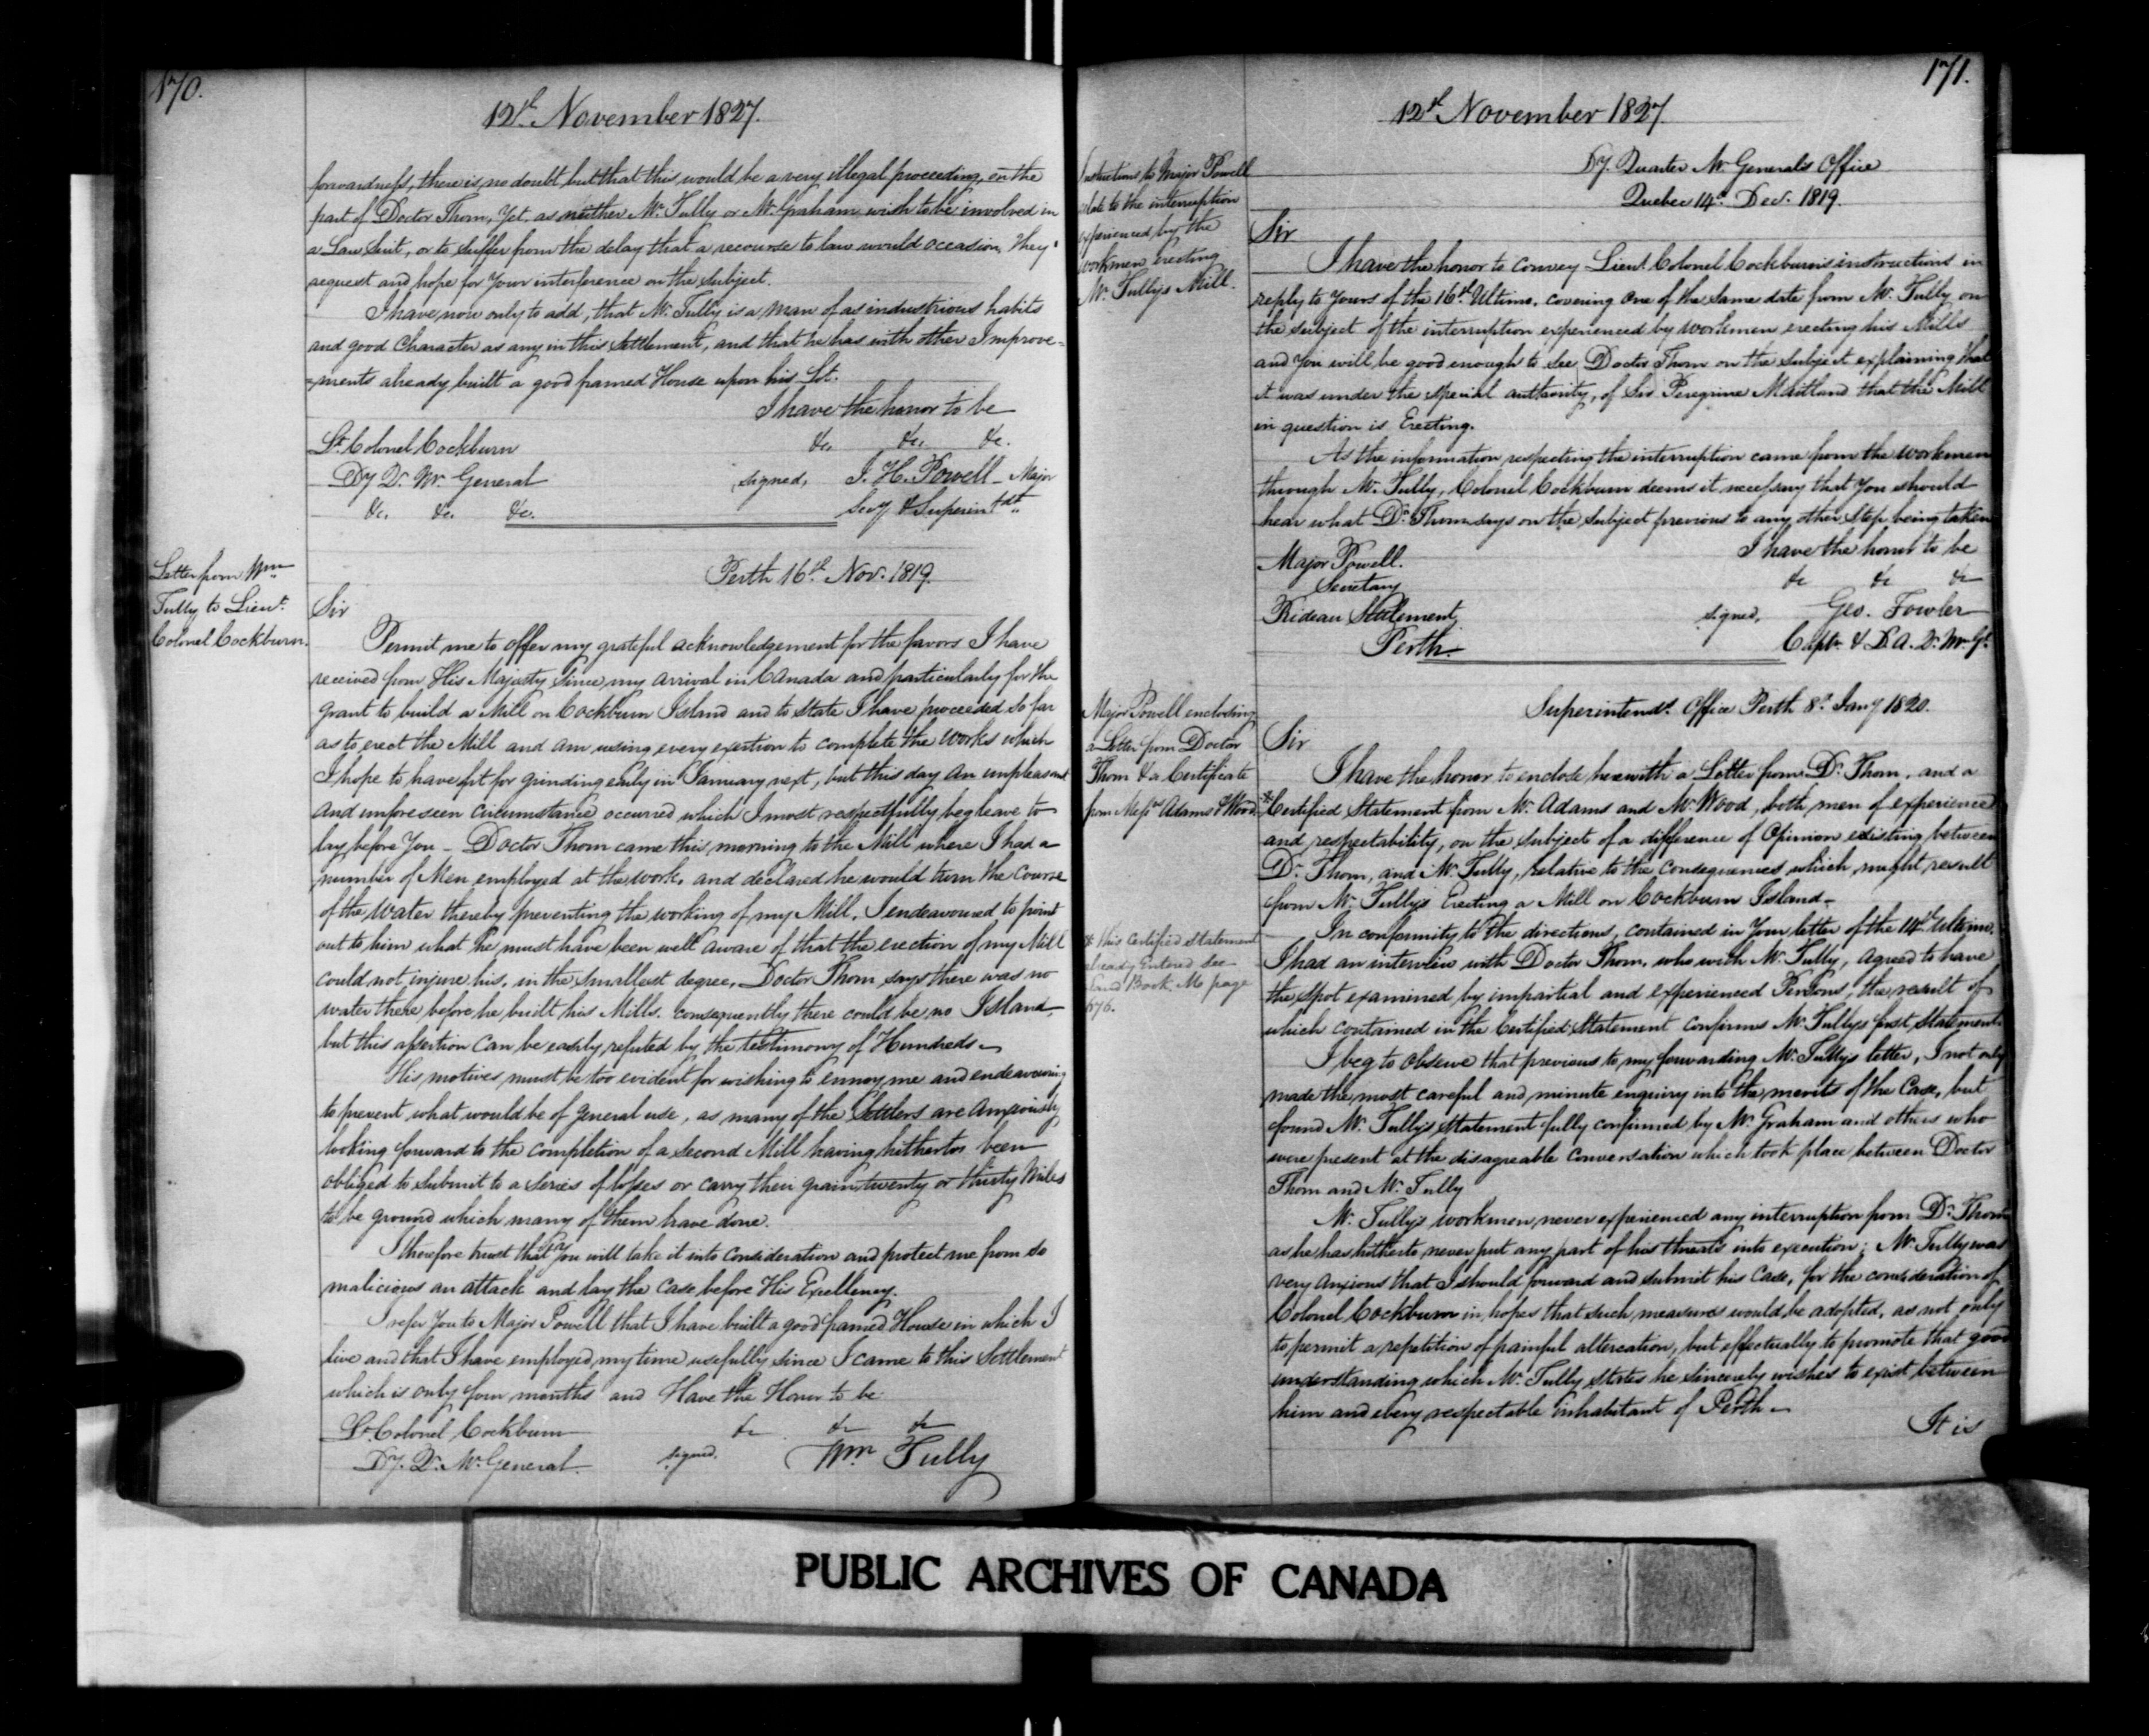 170.
12th November 1827.
forwardness, there is no doubt but that this would be a very illegal proceeding, on the
part of Doctor Thom, Yet, as neither Mr. Tully or Mr. Graham wish to be involved in
a Law Suit, or to suffer from the delay that a recourse to law would occasion, they
request and hope for Your interference on the subject.
I have now only to add, that Mr. Tully is a man of as industrious habits
and good Character as any in this Settlement, and that he has with other Improve=
=ments already built a good framed House upon his Lot.
I have the honor to be
Lt. Colonel Cockburn &c. &c. &c.
Dy Qr. Mr. General signed, J. H. Powell - Major
&c. &c. &c. Secy & Superintdt.
Letter from Wm
Tully to Lieut.
Colonel Cockburn.
Perth 16th Nov. 1819.
Sir
Permit me to offer my grateful acknowledgement for the favors I have
received from His Majesty since my arrival in Canada and particularly for the
grant to build a Mill on Cockburn Island and to state I have proceeded so far
as to erect the Mill and am using every exertion to complete the works which
I hope to have fit for grinding early in January next, but this day an unpleasant
and unforeseen circumstance occurred which I most respectfully beg leave to
lay before You - Doctor Thom came this morning to the Mill where I had a
number of Men employed at the work, and declared he would turn the Course
of the Water thereby preventing the working of my Mill, I endeavoured to point
out to him what he must have been well aware of that the erection of my Mill
could not injure his, in the smallest degree, Doctor Thom says there was no
water there before he built his Mills, consequently there could be no Island,
but this assertion can be easily refuted by the testimony of Hundreds -
His motives must be too evident for wishing to annoy me and endeavouring
to prevent what would be of general use, as many of the Settlers are anxiously
looking forward to the completion of a second Mill having hitherto been
obliged to submit to a series of losses or carry their grain twenty or thirty Miles
to be ground which many of them have done.
I therefore trust that You will take it into consideration and protect me from so
malicious an attack and lay the Case before His Excellency.
I refer You to Major Powell that I have built a good framed House in which I
live and that I have employed my time usefully since I came to this Settlement
which is only four months and Have the Honor to be
Lt. Colonel Cockburn &c &c &c
Dy. Qr. Mr. General. signed. Wm Tully
171.
12th November 1827
Instructions to Major Powell
relate to the interruption
experienced by the
workmen erecting
Mr. Tully's Mill.
Dy. Quarter Mr. General's Office
Quebec 14th Dec. 1819.
Sir
I have the honor to convey Lieut Colonel Cockburn's instructions in
reply to Yours of the 16th Ultimo, covering one of the same date from Mr. Tully on
the subject of the interruption experienced by workmen erecting his Mills
and You will be good enough to see Doctor Thom on the subject explaining that
it was under the special authority, of Sir Peregrine Maitland that the Mill
in question is Erecting.
As the information respecting the interruption came from the workmen
through Mr. Tully, Colonel Cockburn deems it necessary that You should
hear what Dr. Thom says on the subject previous to any other Step being taken
I have the honor to be
Major Powell. &c &c &c
Secretary
Rideau Settlement signed, Geo. Fowler
Perth. Captn. & D. A. Q. Mr. Gl.
Major Powell enclosing
a Letter from Doctor
Thom & a Certificate
from Messrs Adams & Wood
Superintendt. Office Perth 8th Jany 1820.
Sir
I have the honor to enclose herewith a Letter from Dr. Thom, and a
* Certified Statement from Mr. Adams and Mr. Wood, both men of experience
and respectability, on the subject of a difference of Opinion existing between
Dr. Thom, and Mr. Tully, relative to the consequences which might result
from Mr. Tully's Erecting a Mill on Cockburn Island -
In conformity to the directions, contained in Your letter of the 14th Ultimo,
* This Certified Statement
already Entered see
Land Book M page
676.
I had an interview with Doctor Thom, who with Mr. Tully, agreed to have
the spot examined by impartial and experienced Persons, the result of
which contained in the Certified Statement confirms Mr. Tully's first Statement.
I beg to observe that previous to my forwarding Mr. Tully's letter, I not only
made the most careful and minute enquiry into the merits of the Case, but
found Mr. Tully's statement fully confirmed by Mr. Graham and others who
were present at the disagreable conversation which took place between Doctor
Thom and Mr. Tully
Mr. Tully's workmen never experienced any interruption from Dr. Thom
as he has hitherto never put any part of his threats into execution; Mr. Tully was
very anxious that I should forward and submit his Case, for the consideration of
Colonel Cockburn in hopes that such measures would be adopted, as not only
to permit a repetition of painful altercation, but effectually to promote that good
understanding which Mr. Tully states he sincerely wishes to exist between
him and every respectable inhabitant of Perth -
It is
PUBLIC ARCHIVES OF CANADA